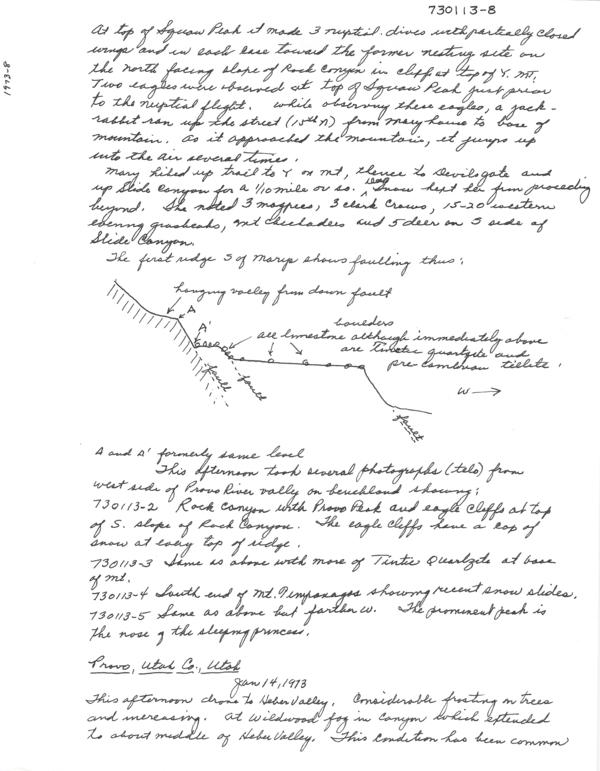 730113-8
1973-8
At top of Squaw Peak it made 3 nuptial dives with partially closed
wings and in each case toward the former nesting site on
the north facing slope of Rock Canyon in cliff at top of Y. Mt.
Two eagles were observed at top of Squaw Peak just prior
to the nuptial flight. While observing these eagles, a jack-
rabbit ran up the street (15th N) from Mary house to base of
mountain. As it approached the mountain, it jumps up
into the air several times.
Mary hiked up trail to Y on mt, thence to Devils gate and
up Slide Canyon for a 1/10 mile or so. Deep Snow kept her from proceeding
beyond. She noted 3 magpies, 3 clark crows, 15-20 western
evening grosbeaks, mt chickadees and 5 deer on S side of
Slide Canyon.
The first ridge S of Marys shows faulting thus:
hanging valley from down fault
A
A'
boulders
all limestone although immediately above
are Tintic quartzite and
pre-cambrian tillite.
fault
fault
W →
fault
A and A' formerly same level
This afternoon took several photographs (tele) from
west side of Provo River valley on benchland showing:
730113-2 Rock Canyon with Provo Peak and eagle cliffs at top
of S. slope of Rock Canyon. The eagle cliffs have a cap of
snow at very top of ridge.
730113-3 Same as above with more of Tintic Quartzite at base
of mt.
730113-4 South end of Mt. Timpanogos showing recent snow slides.
730113-5 Same as above but farther W. The prominent peak is
the nose of the sleeping princess.
Provo, Utah Co., Utah
Jan 14, 1973
This afternoon drove to Heber Valley. Considerable frosting on trees
and increasing. At Wildwood fog in canyon which extended
to about middle of Heber Valley. This condition has been common